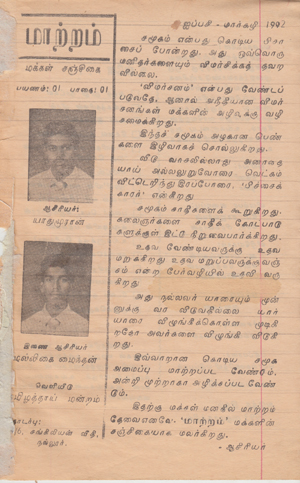 ஐப்பசி - மார்கழி 1992
மாற்றம்
மக்கள் சஞ்சிகை
பயணம்: 01 பாதை: 01
ஆசிரியர்:
இணை ஆசிரியர்
மைந்தன்
வெளியீடு
மன்றம்
சங்கிலியன் வீதி,
நல்லூர்.
சமூகம் என்பது கொடிய பிரா
சைப் போன்றது. அது ஒவ்வொரு
மனிதர்களையும் விமர்சிக்கத் தவற
வில்லை.
'விமர்சனம்' என்பது வேண்டப்
படுவதே. ஆனால் அநீதியான விமர்
சனங்கள் மக்களின் அழிவுக்கு வழி
சமைக்கிறது.
இந்தச் சமூகம் அழகான பெண்
களை இழிவாகச் சொல்லுகிறது.
வீடு வாசலில்லாது அனாதை
யாய் அல்லலுறுவோரை வெட்கம்
விட்டெறிந்து இரப்போரை, 'பிச்சைக்
காரர்' என்கிறது
சமூகம் சாதிகளைக் கூறுகிறது.
கலைஞர்களை சாதிக் கோடபாடு
களுக்குள் இட்டு நிறுவைபார்க்கிறது.
உதவ வேண்டியவருக்கு உதவ
மறுக்கிறது உதவ மறுப்பவருக்குலஞ்
சம் என்ற பேர்வழியில் உதவி வரு
கிறது
அது நல்லவர் யாரையும் முன்
னுக்கு வர விடுவதில்லை யார்
யாரை விழுங்கிக்கொள்ள முடிகி
றதோ அவர்களை விழுங்கி விடுகி
றது.
இவ்வாறான கொடிய சமூக
அமைப்பு மாற்றப்பட வேண்டும்.
அன்றி முற்றாகா அழிக்கப்பட வேண்
டும்.
இதற்கு மக்கள் மனதில் மாற்றம்
தேவை எனவே 'மாற்றம்' மக்களின்
சஞ்சிகையாக மலர்கிறது.
- ஆசிரியர்